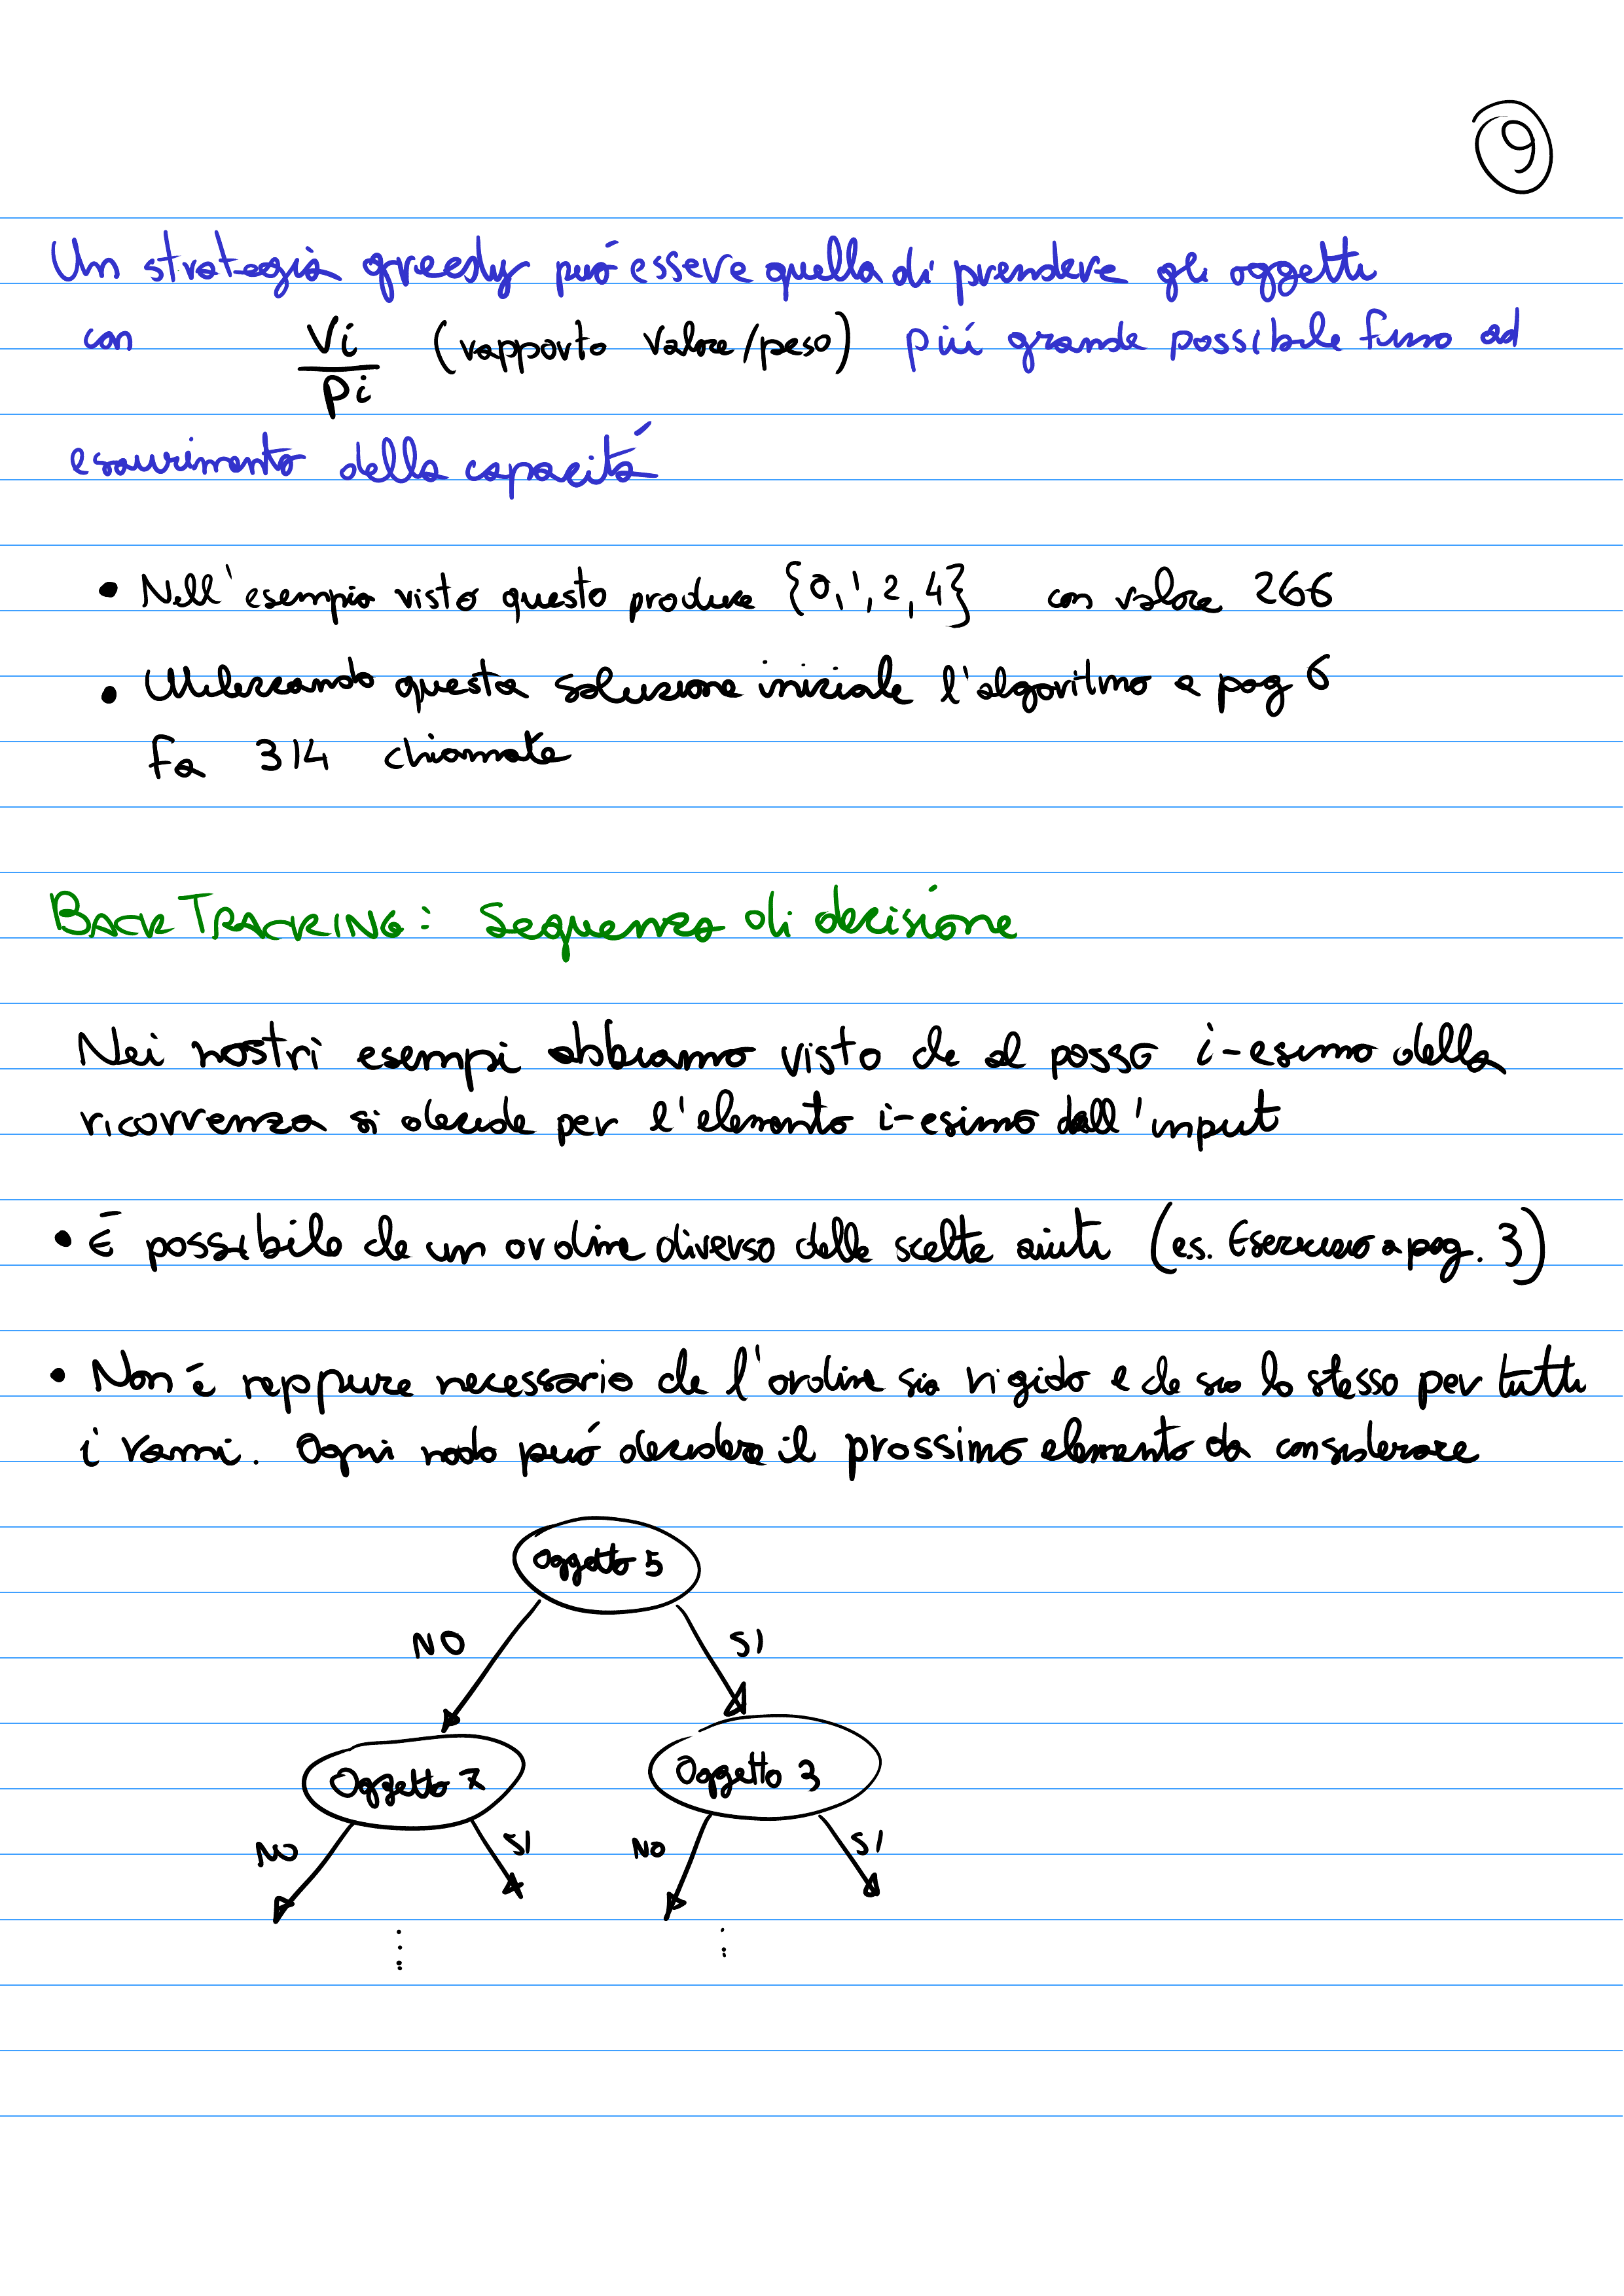 9
Un strategia greedy può essere quella di prendere gli oggetti
con Vi/Pi (rapporto valore/peso) più grande possibile fino ad
esaurimento della capacità
• Nell'esempio visto questo produce {0,1,2,4} con valore 266
• Utilizzando questa soluzione iniziale l'algoritmo a pag 6
fa 314 chiamate
BACKTRACKING: Sequenza di decisione
Nei nostri esempi abbiamo visto che al passo i-esimo della
ricorrenza si decide per l'elemento i-esimo dell'input
• È possibile che un ordine diverso delle scelte aiuti (es. Esercizio a pag. 3)
• Non è neppure necessario che l'ordine sia rigido e che sia lo stesso per tutti
i rami. Ogni nodo può decidere il prossimo elemento da considerare
Oggetto 5
NO SI
Oggetto 7 Oggetto 3
NO SI NO SI
⋮ ⋮